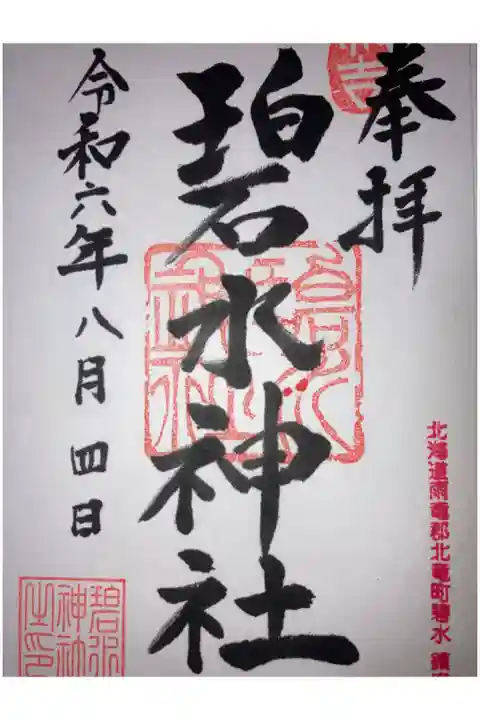 奉拝
碧水神社
令和六年八月四日
北海道雨竜郡北竜町碧水 鎮
碧水
神社
之印